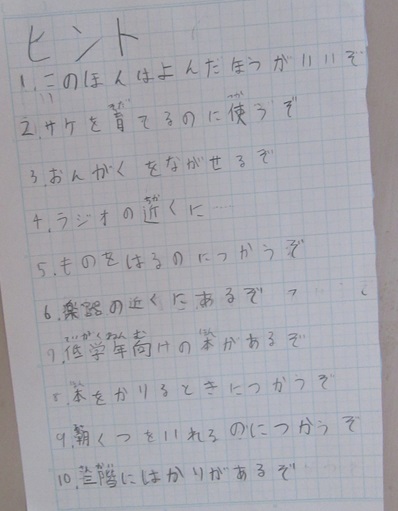 ヒント
1.このほんはよんだほうがいいぞ
2.サケを育てるのに使うぞ
3.おんがくをながせるぞ
4.ラジオの近くに……
5.ものをはるのにつかうぞ
6.楽器の近くにあるぞ
7.低学年向けの本があるぞ
8.本をかりるときにつかうぞ
9.朝くつをいれるのにつかうぞ
10.三階にはかりがあるぞ